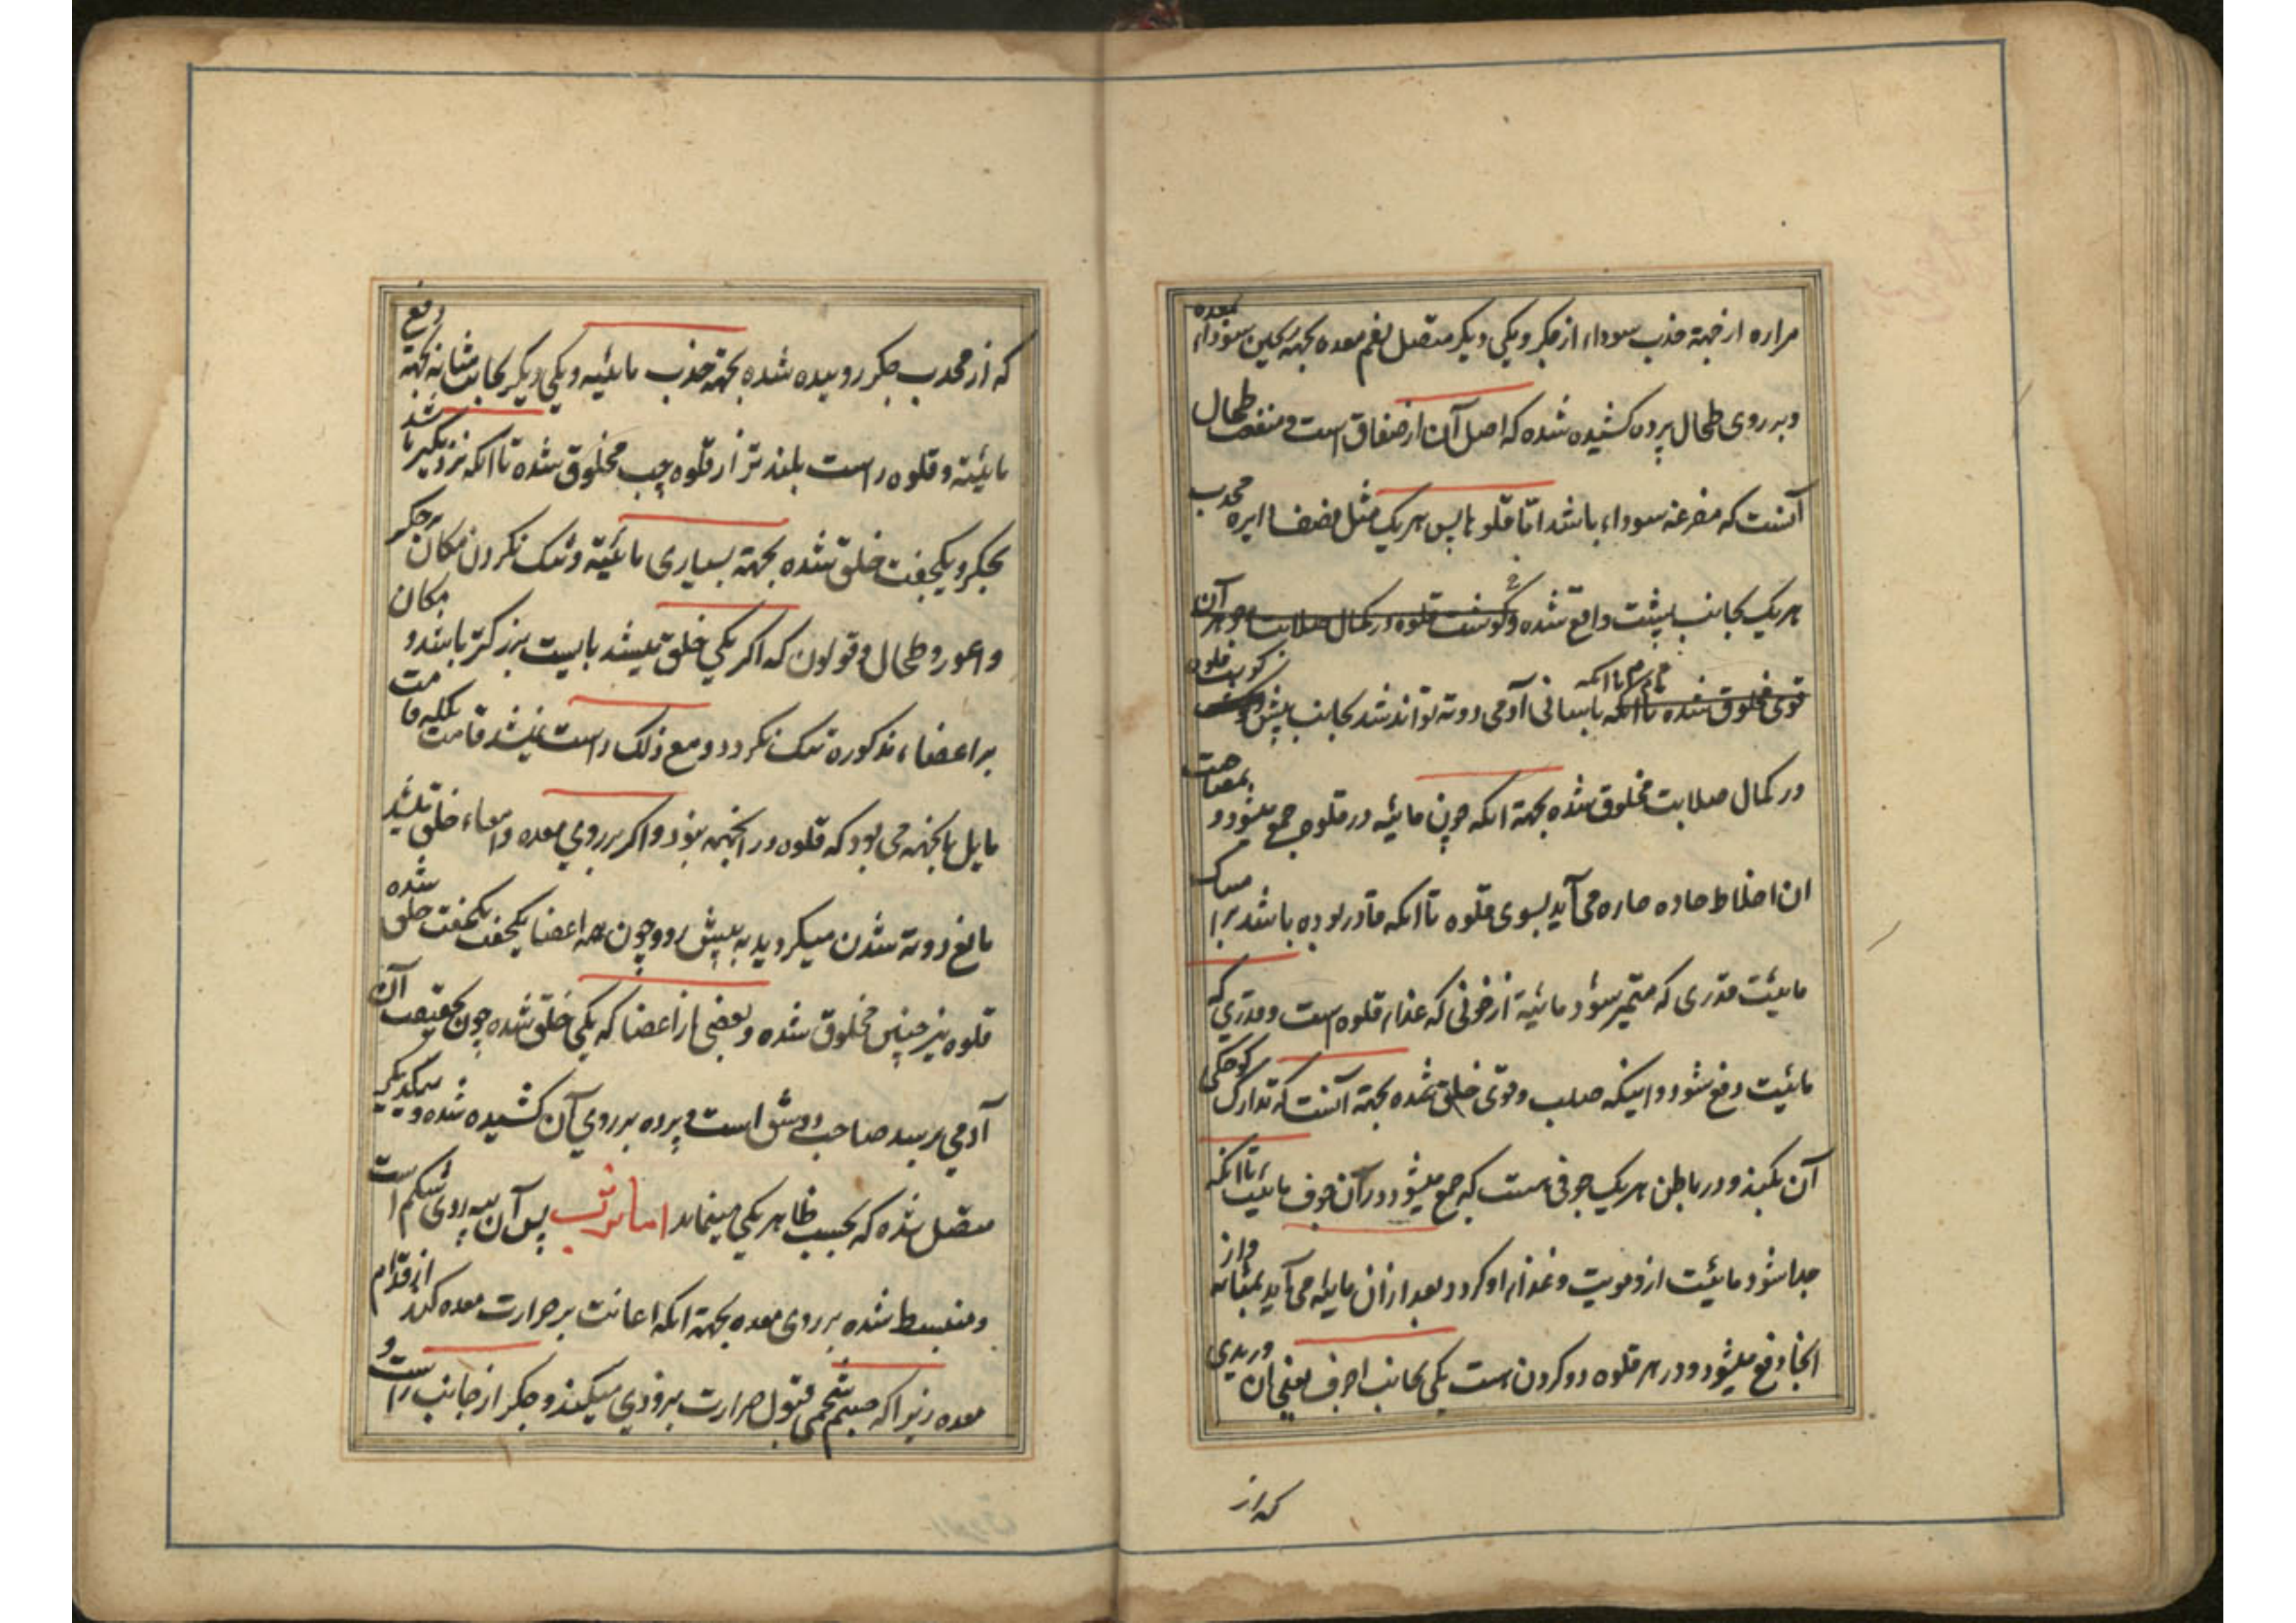 مراره از جهته جذب سوداء از جگر و یکی دیگر متصل بفم معده بجهة تسکین سوداء بمعده
و بر روی طحال پرده کشیده شده که اصل آن از صفاق است و منفعت طحال
آنست که مفرغه سوداء باشد اما قلوها پس هر یک مثل نصف دایره محدب
هر یک بجانب پشت واقع شده و گوشت قلوه در کمال صلابت و جوهر آن
قوی مخلوق شده تا آنکه باسانی آدمی دوته تواند شد بجانب پیش و گوشت قلوه
در کمال صلابت مخلوق شده بجهة انکه چون مائیه در قلوه جمع میشود و بمصاحبت
ان اخلاط حاده حاره می آید بسوی قلوه تا انکه قادر بوده باشد بر امساک
مائیت قدری که متمیز شود مائیة از خونی که غذاء قلوه است و قدری که
مائیت دفع شود و اینکه صلب و قوی خلق شده بجهة آنست که تدارک کوچکی
آن بکند و در باطن هر یک جوفی هست که جمع میشود در آن جوف مائیت تا انکه
جدا شود مائیت از دمویت و غذاء او کردد و بعد از ان مائیه می آید بمثانه و از
انجا دفع میشود و در هر قلوه دو کردن است یکی بجانب اجوف یعنی ان وریدی
که از
که از محدب جگر روییده شده بجهة جذب مائیه و یکی دیگر بجانب مثانه بجهة دفع
مائیته و قلوه راست بلندتر از قلوه چپ مخلوق شده تا انکه نزدیکتر باشد
بجگر و یکجفت خلق شده بجهة بسیاری مائیة و تنک نکردن مکان بر جگر
و اعور و طحال و قولون که اکر یکی خلق میشد بایست بزرکتر باشد و مکان
بر اعضاء مذکوره تنک نکردد و مع ذلک راست نمیشد قامت بلکه قامت
مایل بانجهة می بود که قلوه در انجهة بود و اکر بر روی معده و امعاء خلق میشد
مانع دوته شدن میکردید به پیش رو و چون همه اعضا یکجفت یکجفت خلق شده
قلوه نیز چنین مخلوق شده و بعضی از اعضا که یکی خلق شده چون بحقیقت آن
آدمی برسد صاحب دو شق است و پرده بر روی آن کشیده شده و بیکدیگر
متصل شده که بحسب ظاهر یکی مینماید اما ثرب پس آن پیه روی شکم است
و منبسط شده بر روی معده بجهة انکه اعانت بر حرارت معده کند از قدام
معده زیرا که جسم شحمی قبول حرارت بزودی میکند و جگر از جانب راست و